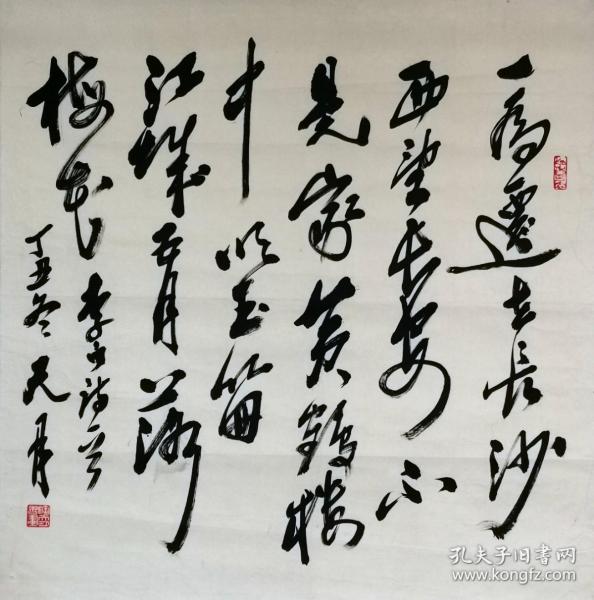 一为遷去長沙
西望長安不
見家黄鶴楼
中吹玉笛
江城五月落
梅花
李白诗一首
丁丑冬
孔夫子旧书网
www.kongfz.com